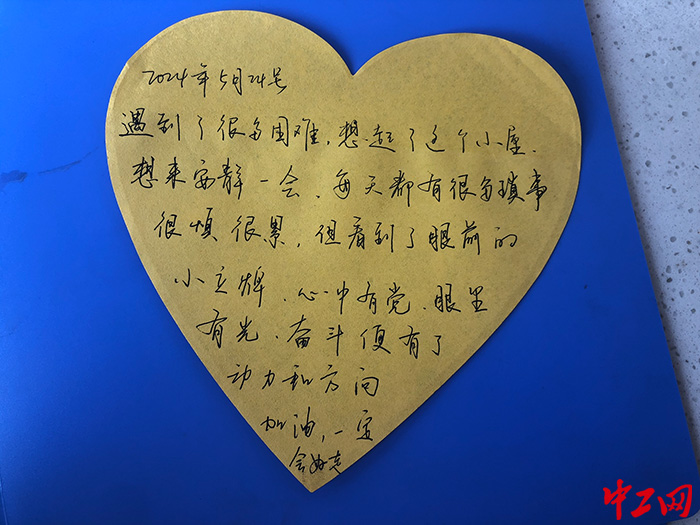 2024年5月24号
遇到了很多困难,想起了这个小屋.
想来安静一会、每天都有很多琐事
很烦很累,但看到了眼前的
小立牌、心中有党、眼里
有光、奋斗便有了
动力和方向
加油,一定
会好走
中工网